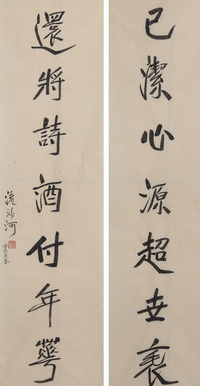 已潔心源超世表
還將詩酒付年華